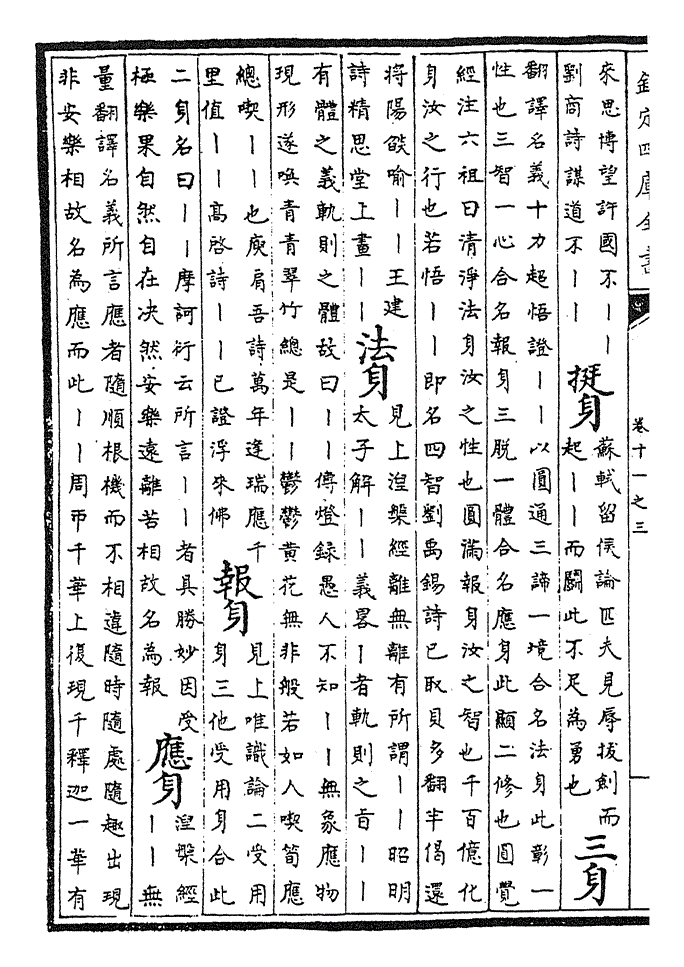 欽定四庫全書
卷十一之三
來思博望許國不丨丨
劉商詩謀道不丨丨
挺身
蘇軾留侯論匹夫見辱拔劍而
起丨丨而鬭此不足為勇也
三身
翻譯名義十力超悟證丨丨以圓通三諦一境合名法身此彰一
性也三智一心合名報身三脱一體合名應身此顯二修也圓覺
經注六祖曰清淨法身汝之性也圓滿報身汝之智也千百億化
身汝之行也若悟丨丨即名四智劉禹錫詩已取貝多翻半偈還
將陽燄喻丨丨王建
詩精思堂上畫丨丨
法身
見上涅槃經離無離有所謂丨丨昭明
太子解丨丨義畧丨者軌則之旨丨丨
有體之義軌則之體故曰丨丨傳燈録愚人不知丨丨無象應物
現形遂喚青青翠竹總是丨丨鬱鬱黄花無非般若如人喫筍應
總喫丨丨也庾肩吾詩萬年逢瑞應千
里值丨丨高啓詩丨丨已證浮來佛
報身
見上唯識論二受用
身三他受用身合此
二身名曰丨丨摩訶衍云所言丨丨者具勝妙因受
極樂果自然自在决然安樂遠離苦相故名為報
應身
涅槃經
丨丨無
量翻譯名義所言應者隨順根機而不相違隨時隨處隨趣出現
非安樂相故名為應而此丨丨周帀千華上復現千釋迦一華有